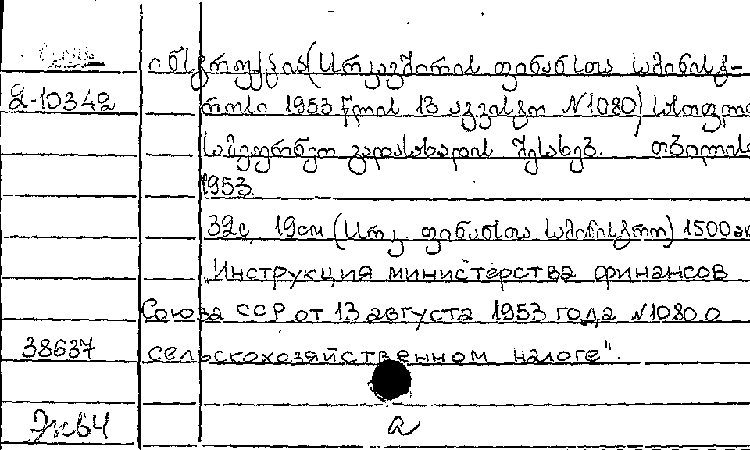 ინსტრუქცია (სსრ კავშირის ფინანსთა სამინისტ-
Д-10342 როსი 1953 წლის 13 აგვისტო N1080) სასოფლო
სამეურნეო გადასახადის შესახებ. თბილისი
1953
32с 19см (სსრკ ფინანსთა სამინისტრო) 1500
„Инструкция министерства финансов
Союза ССР от 13 августа 1953 года N1080 о
38637 сельскохозяйственном налоге".
а